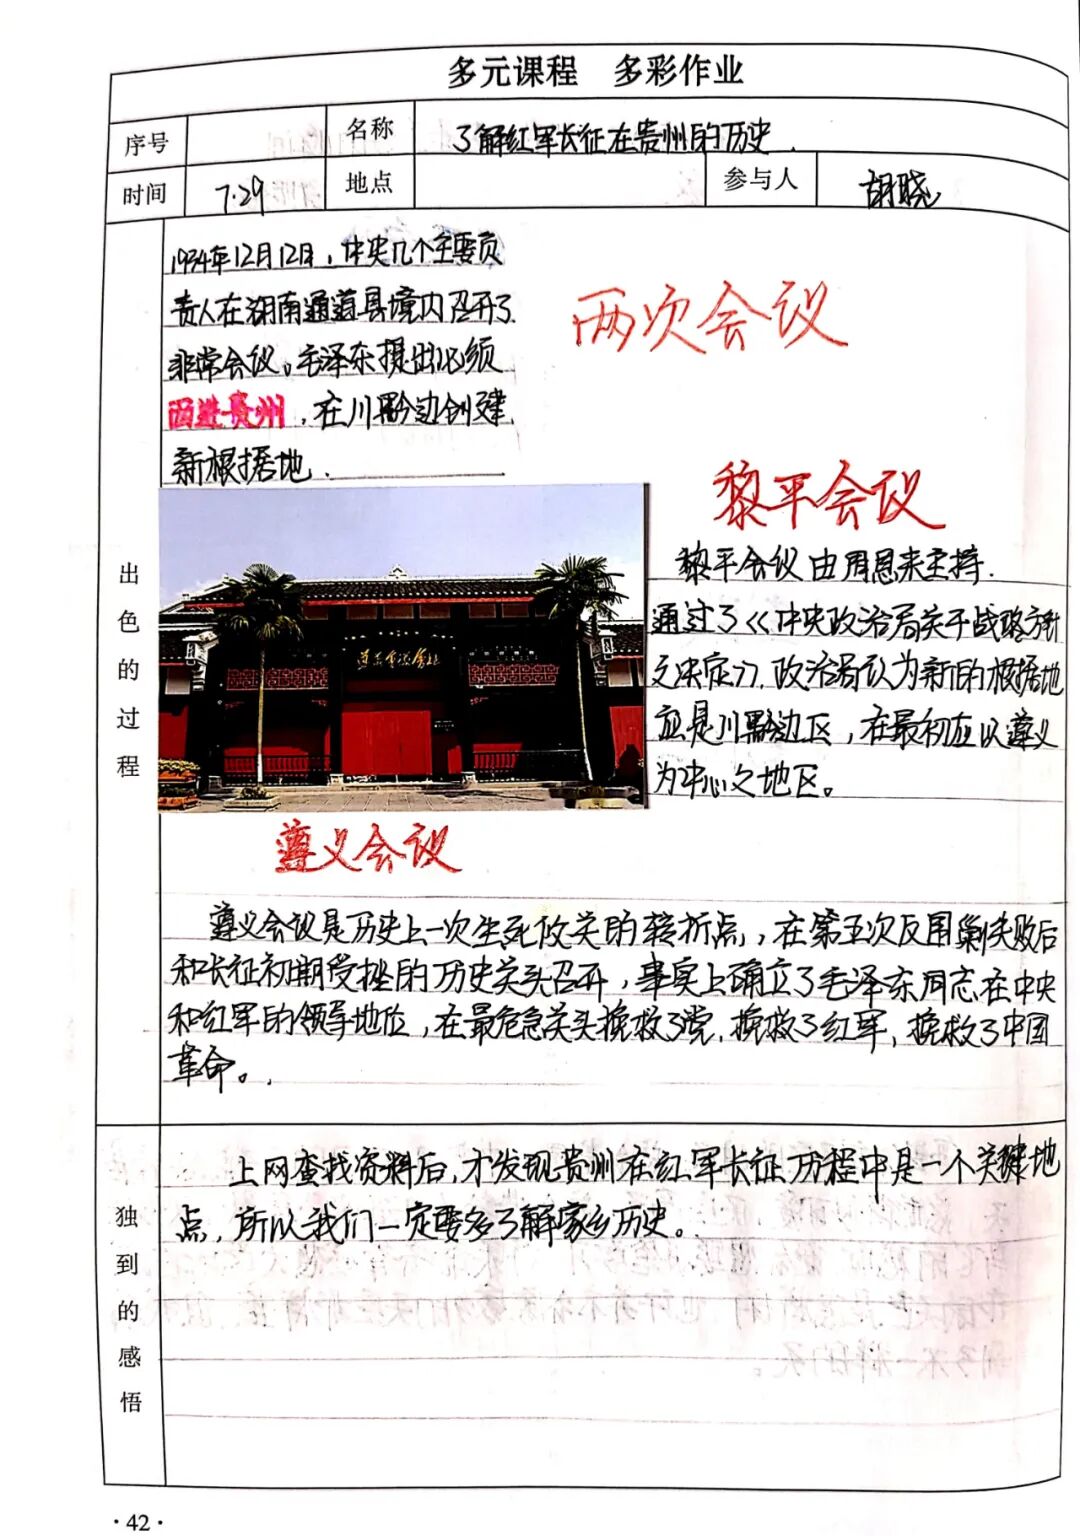 多元课程 多彩作业
序号 名称 了解红军长征在贵州的历史.
时间 7.29 地点 参与人 胡晓
出色的过程
1934年12月12日，中央几个主要负
责人在湖南通道县境内召开了
非常会议。毛泽东提出必须
西进贵州，在川黔边创建
新根据地.
两次会议
遵义会议会址
黎平会议
黎平会议由周恩来主持.
通过了《中央政治局关于战略方针
之决定》，政治局认为新的根据地
应是川黔边区，在最初应以遵义
为中心之地区。
遵义会议
遵义会议是历史上一次生死攸关的转折点，在第五次反围剿失败后
和长征初期受挫的历史关头召开，事实上确立了毛泽东同志在中央
和红军的领导地位，在最危急关头挽救了党，挽救了红军，挽救了中国
革命。
独到的感悟
上网查找资料后，才发现贵州在红军长征历程中是一个关键地
点，所以我们一定要多了解家乡历史。
·42·